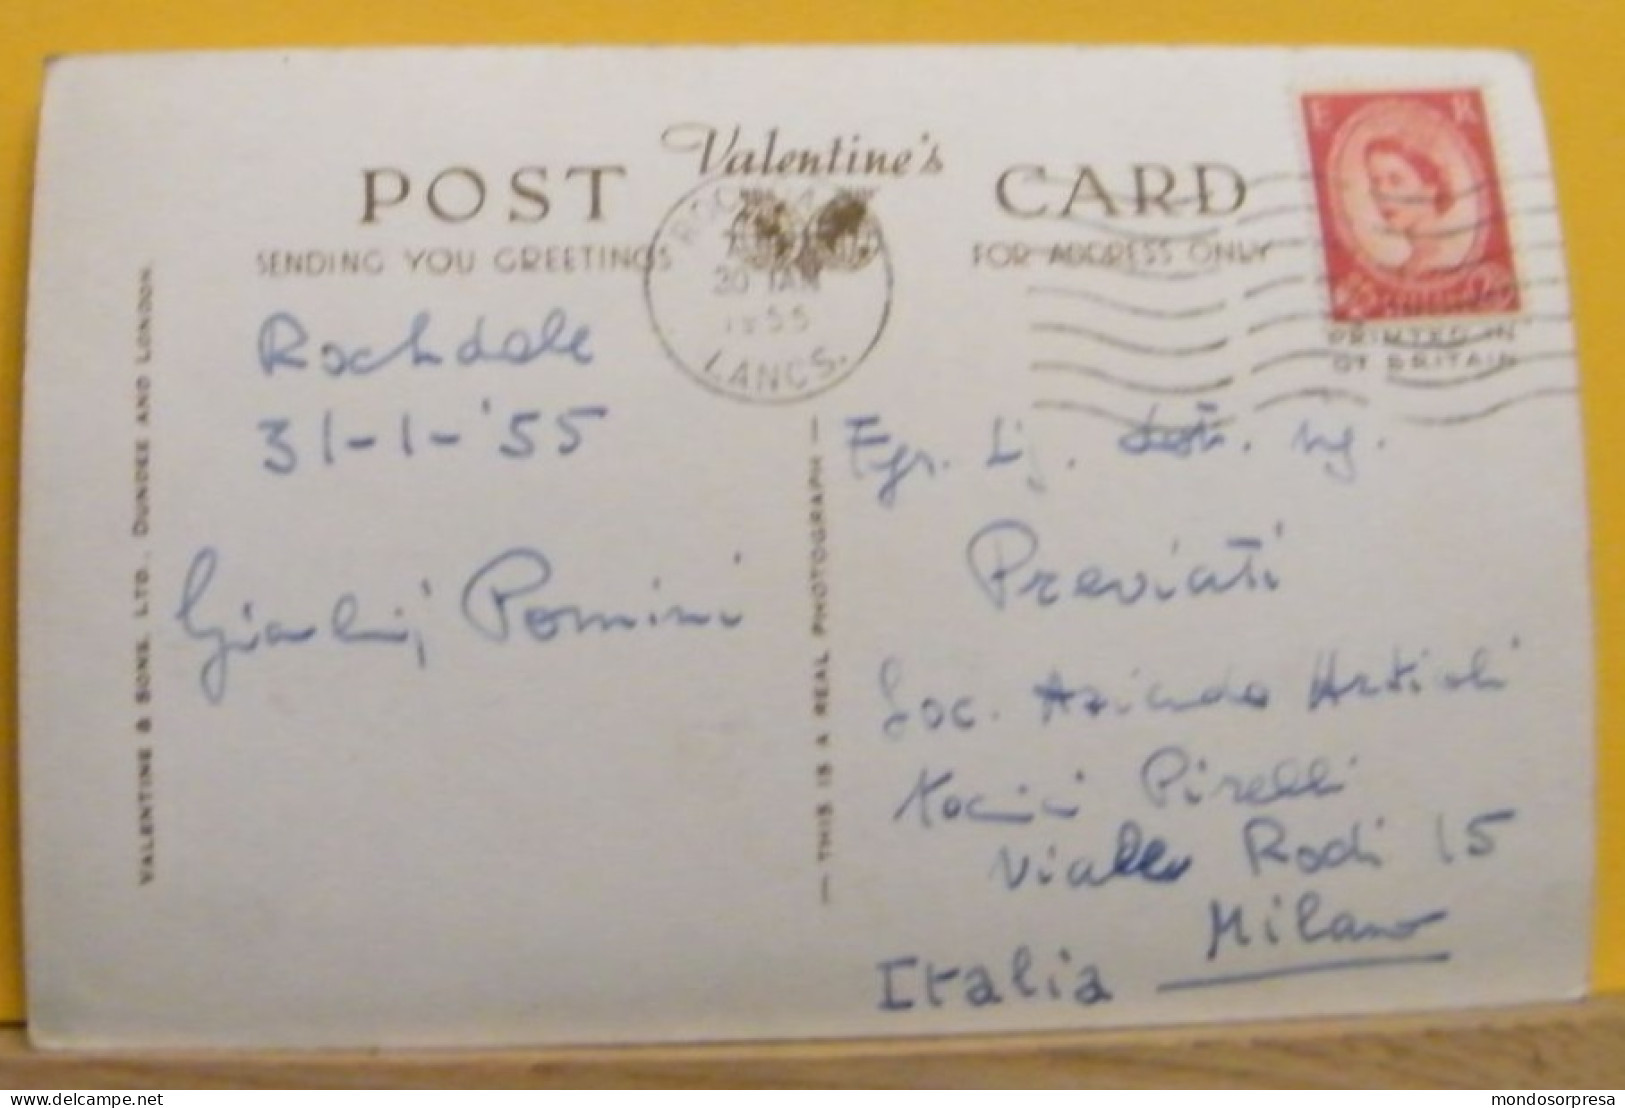 Valentine's
POST CARD
SENDING YOU GREETINGS
FOR ADDRESS ONLY
30 JAN
1955
LANCS.
E R
PRINTED IN
GT BRITAIN
VALENTINE & SONS, LTD., DUNDEE AND LONDON.
Rochdale
31-1-'55
Pomini
— THIS IS A REAL PHOTOGRAPH —
Egr. Sig. Dott. Ing.
Previati
Soc. Azienda Articoli
Tecnici Pirelli
Viale Rodi 15
Milano
Italia
mondosorpresa